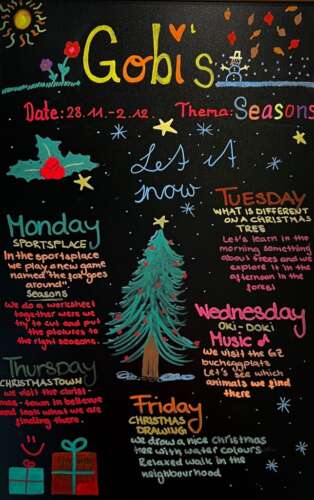 Gobi's
Date: 28.11.-2.12. Thema: Seasons
Let it
snow
Monday
SPORTSPLACE
In the sportsplace
we play a new game
named "the fox goes
around"
seasons
we do a worksheet
together were we
try to cut and put
the pictures to
the right seasons.
TUESDAY
WHAT IS DIFFERENT
ON A CHRISTMAS
TREE
Let's learn in the
morning something
about trees and we
explore it in the
afternoon in the
forest
Wednesday
OKI-DOKI
Music
We visit the GZ
bucheggplatz
Let's see which
animals we find
there
Thursday
CHRISTMASTOWN
we visit the christ-
mas-town in bellevue
and look what we are
finding there.
Friday
CHRISTMAS
DRAWING
we draw a nice christmas
tree with water colours
Relaxed walk in the
neighbourhood